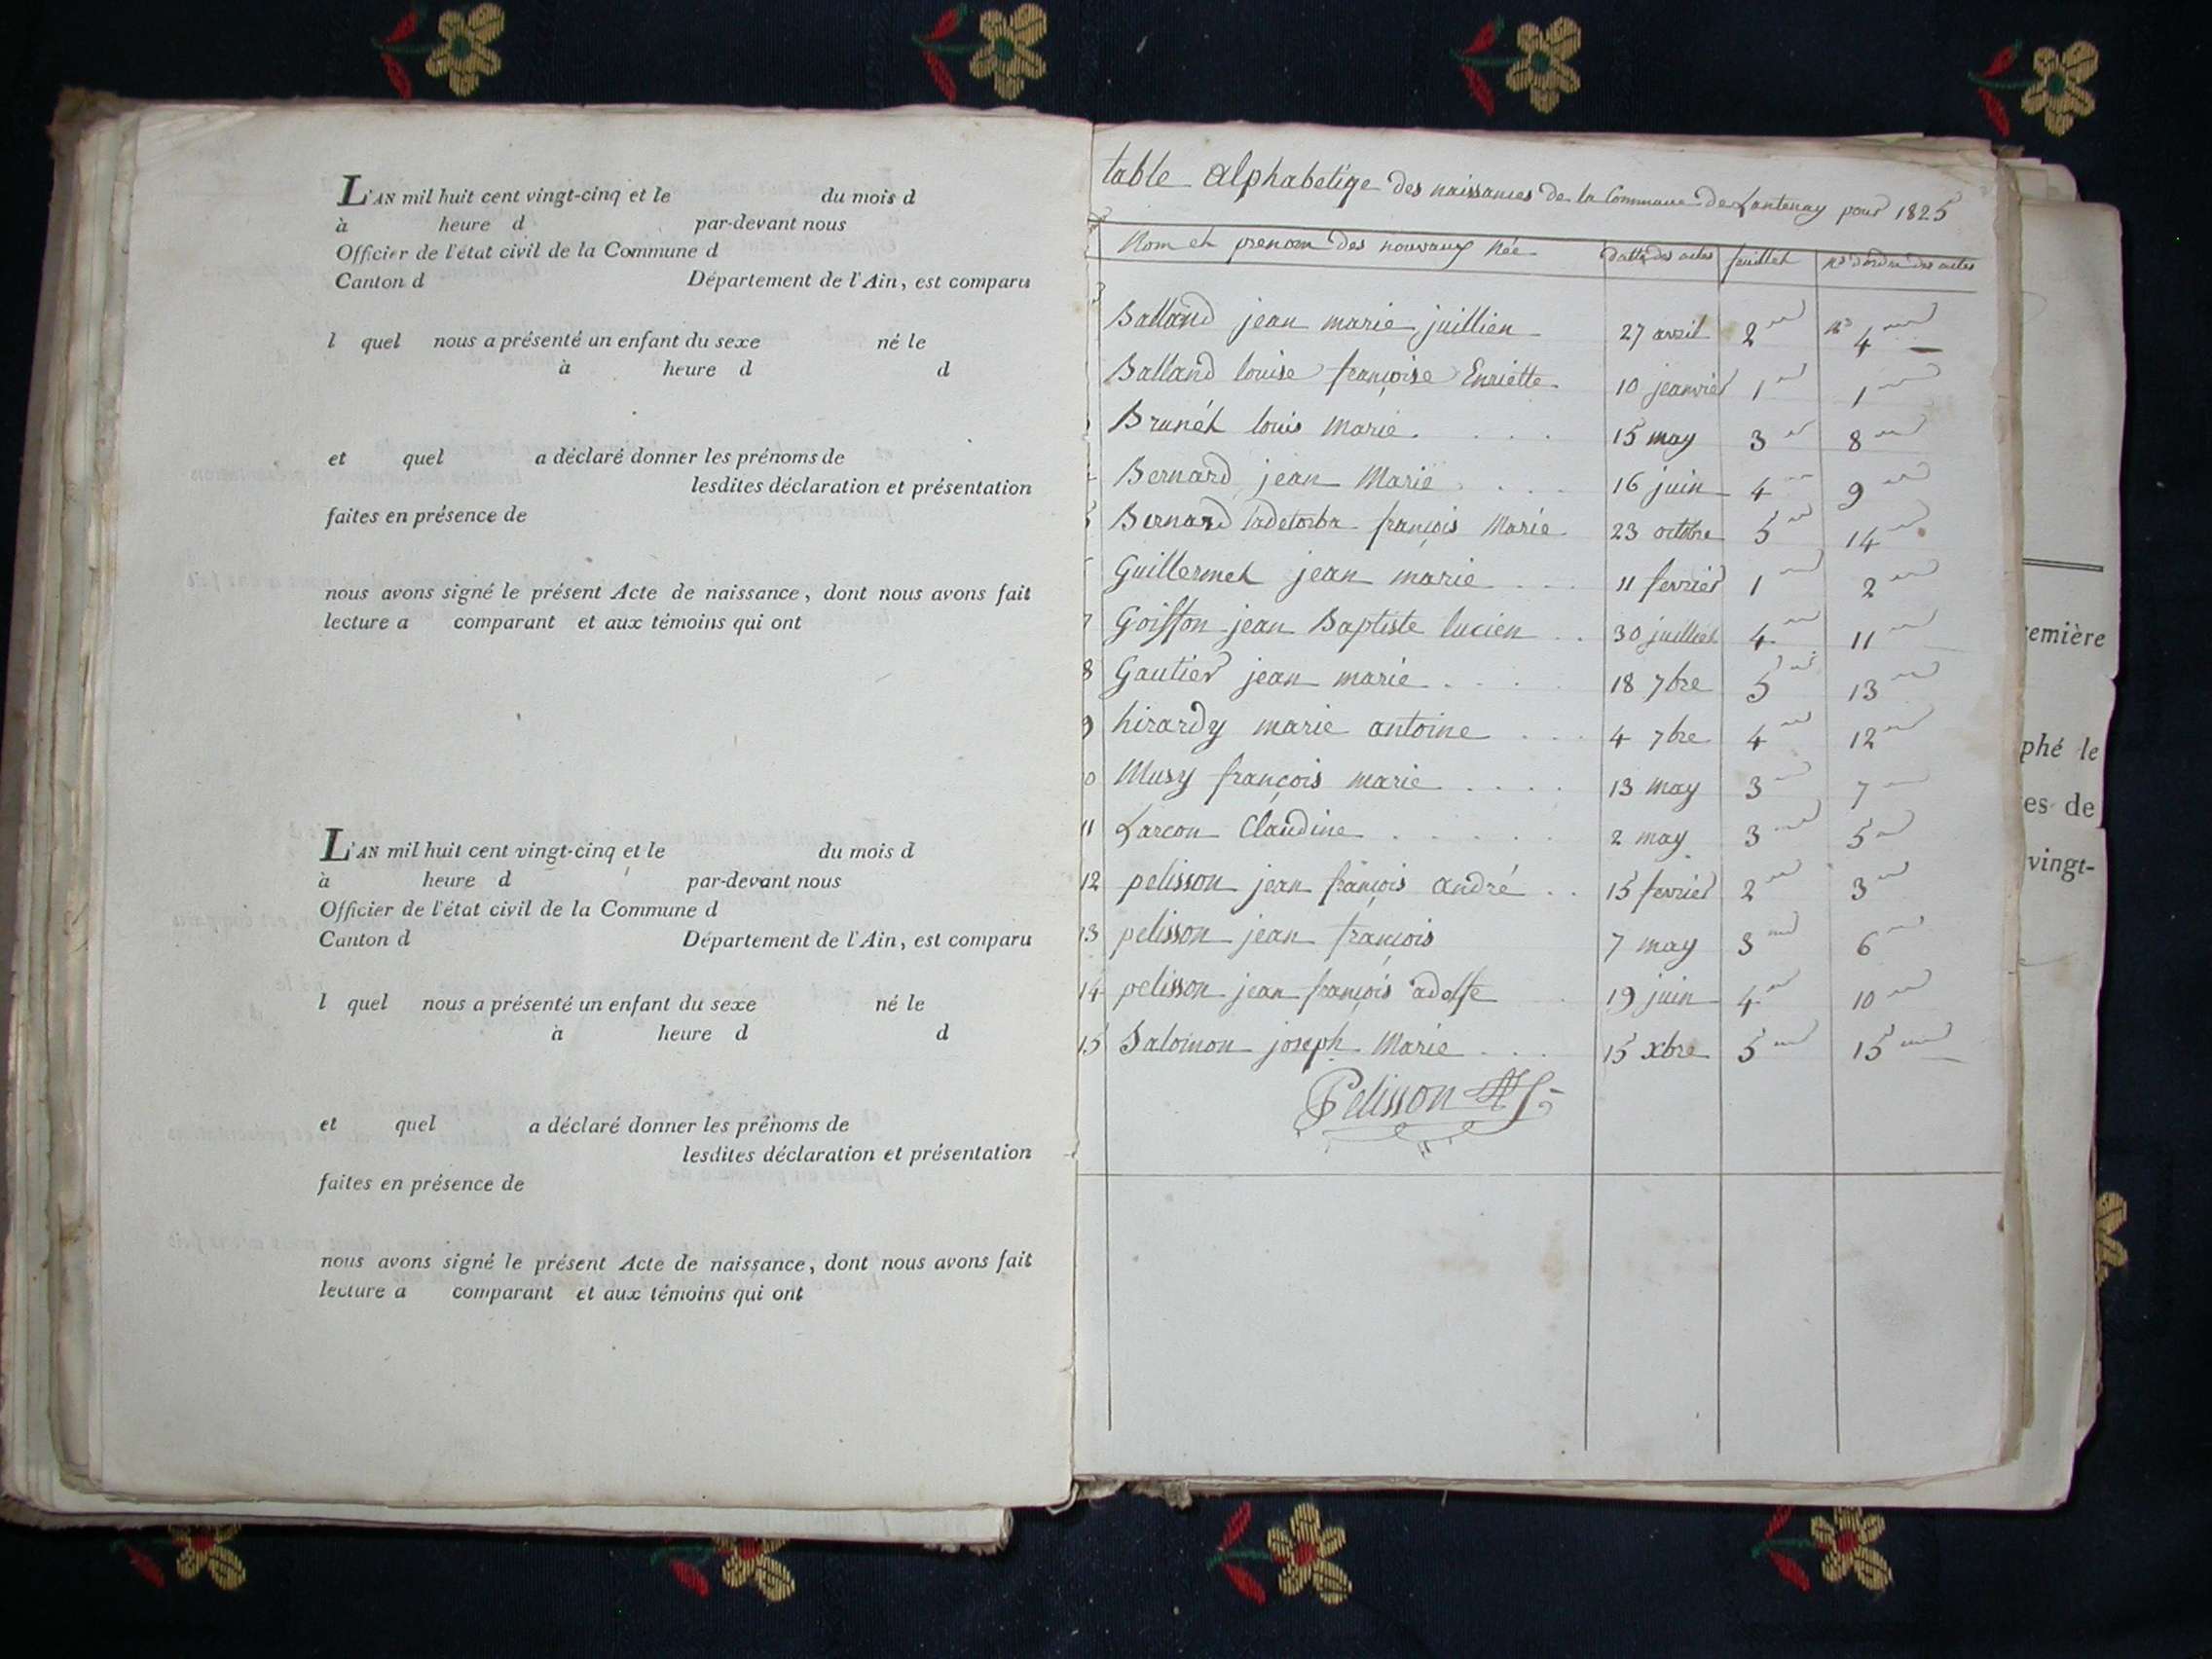 L'AN mil huit cent vingt-cinq et le du mois d
à heure d par-devant nous
Officier de l'état civil de la Commune d
Canton d Département de l'Ain, est comparu
l quel nous a présenté un enfant du sexe né le
à heure d d
et quel a déclaré donner les prénoms de
lesdites déclaration et présentation
faites en présence de
nous avons signé le présent Acte de naissance, dont nous avons fait
lecture a comparant et aux témoins qui ont
L'AN mil huit cent vingt-cinq et le du mois d
à heure d par-devant nous
Officier de l'état civil de la Commune d
Canton d Département de l'Ain, est comparu
l quel nous a présenté un enfant du sexe né le
à heure d d
et quel a déclaré donner les prénoms de
lesdites déclaration et présentation
faites en présence de
nous avons signé le présent Acte de naissance, dont nous avons fait
lecture a comparant et aux témoins qui ont
table alphabetiqe des naissances de la Commune de Lantenay pour 1825
Nom et prenom des nouvaux née datte des actes feuillet no d'ordre des actes
Balland jean marie juillien 27 avril 2 no 4
Balland louise françoise Enriette 10 jeanvier 1 1
Brunét louis marie 15 may 3 8
Bernard jean Marie 16 juin 4 9
Bernard françois Marie 23 octobre 5 14
Guillermet jean marie 11 fevrier 1 2
7 Goiffon jean Baptiste lucien 30 juilliet 4 11
8 Gautier jean marie 18 7bre 5 13
9 hirardy marie antoine 4 7bre 4 12
0 Musy françois marie 13 may 3 7
11 Larcon Claudine 2 may 3 5
12 pelisson jean françois andré 15 fevrier 2 3
13 pelisson jean françois 7 may 3 6
14 pelisson jean françois adolfe 19 juin 4 10
15 Salomon joseph Marie 15 xbre 5 15
Pelisson
emière
phé le
es de
vingt-